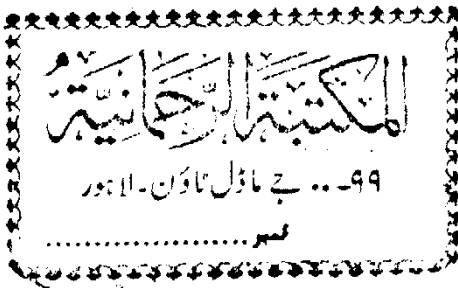 المكتبة الرحمانية
۹۹۔.. جے ماڈل ٹاؤن۔لاہور
نمبر......................